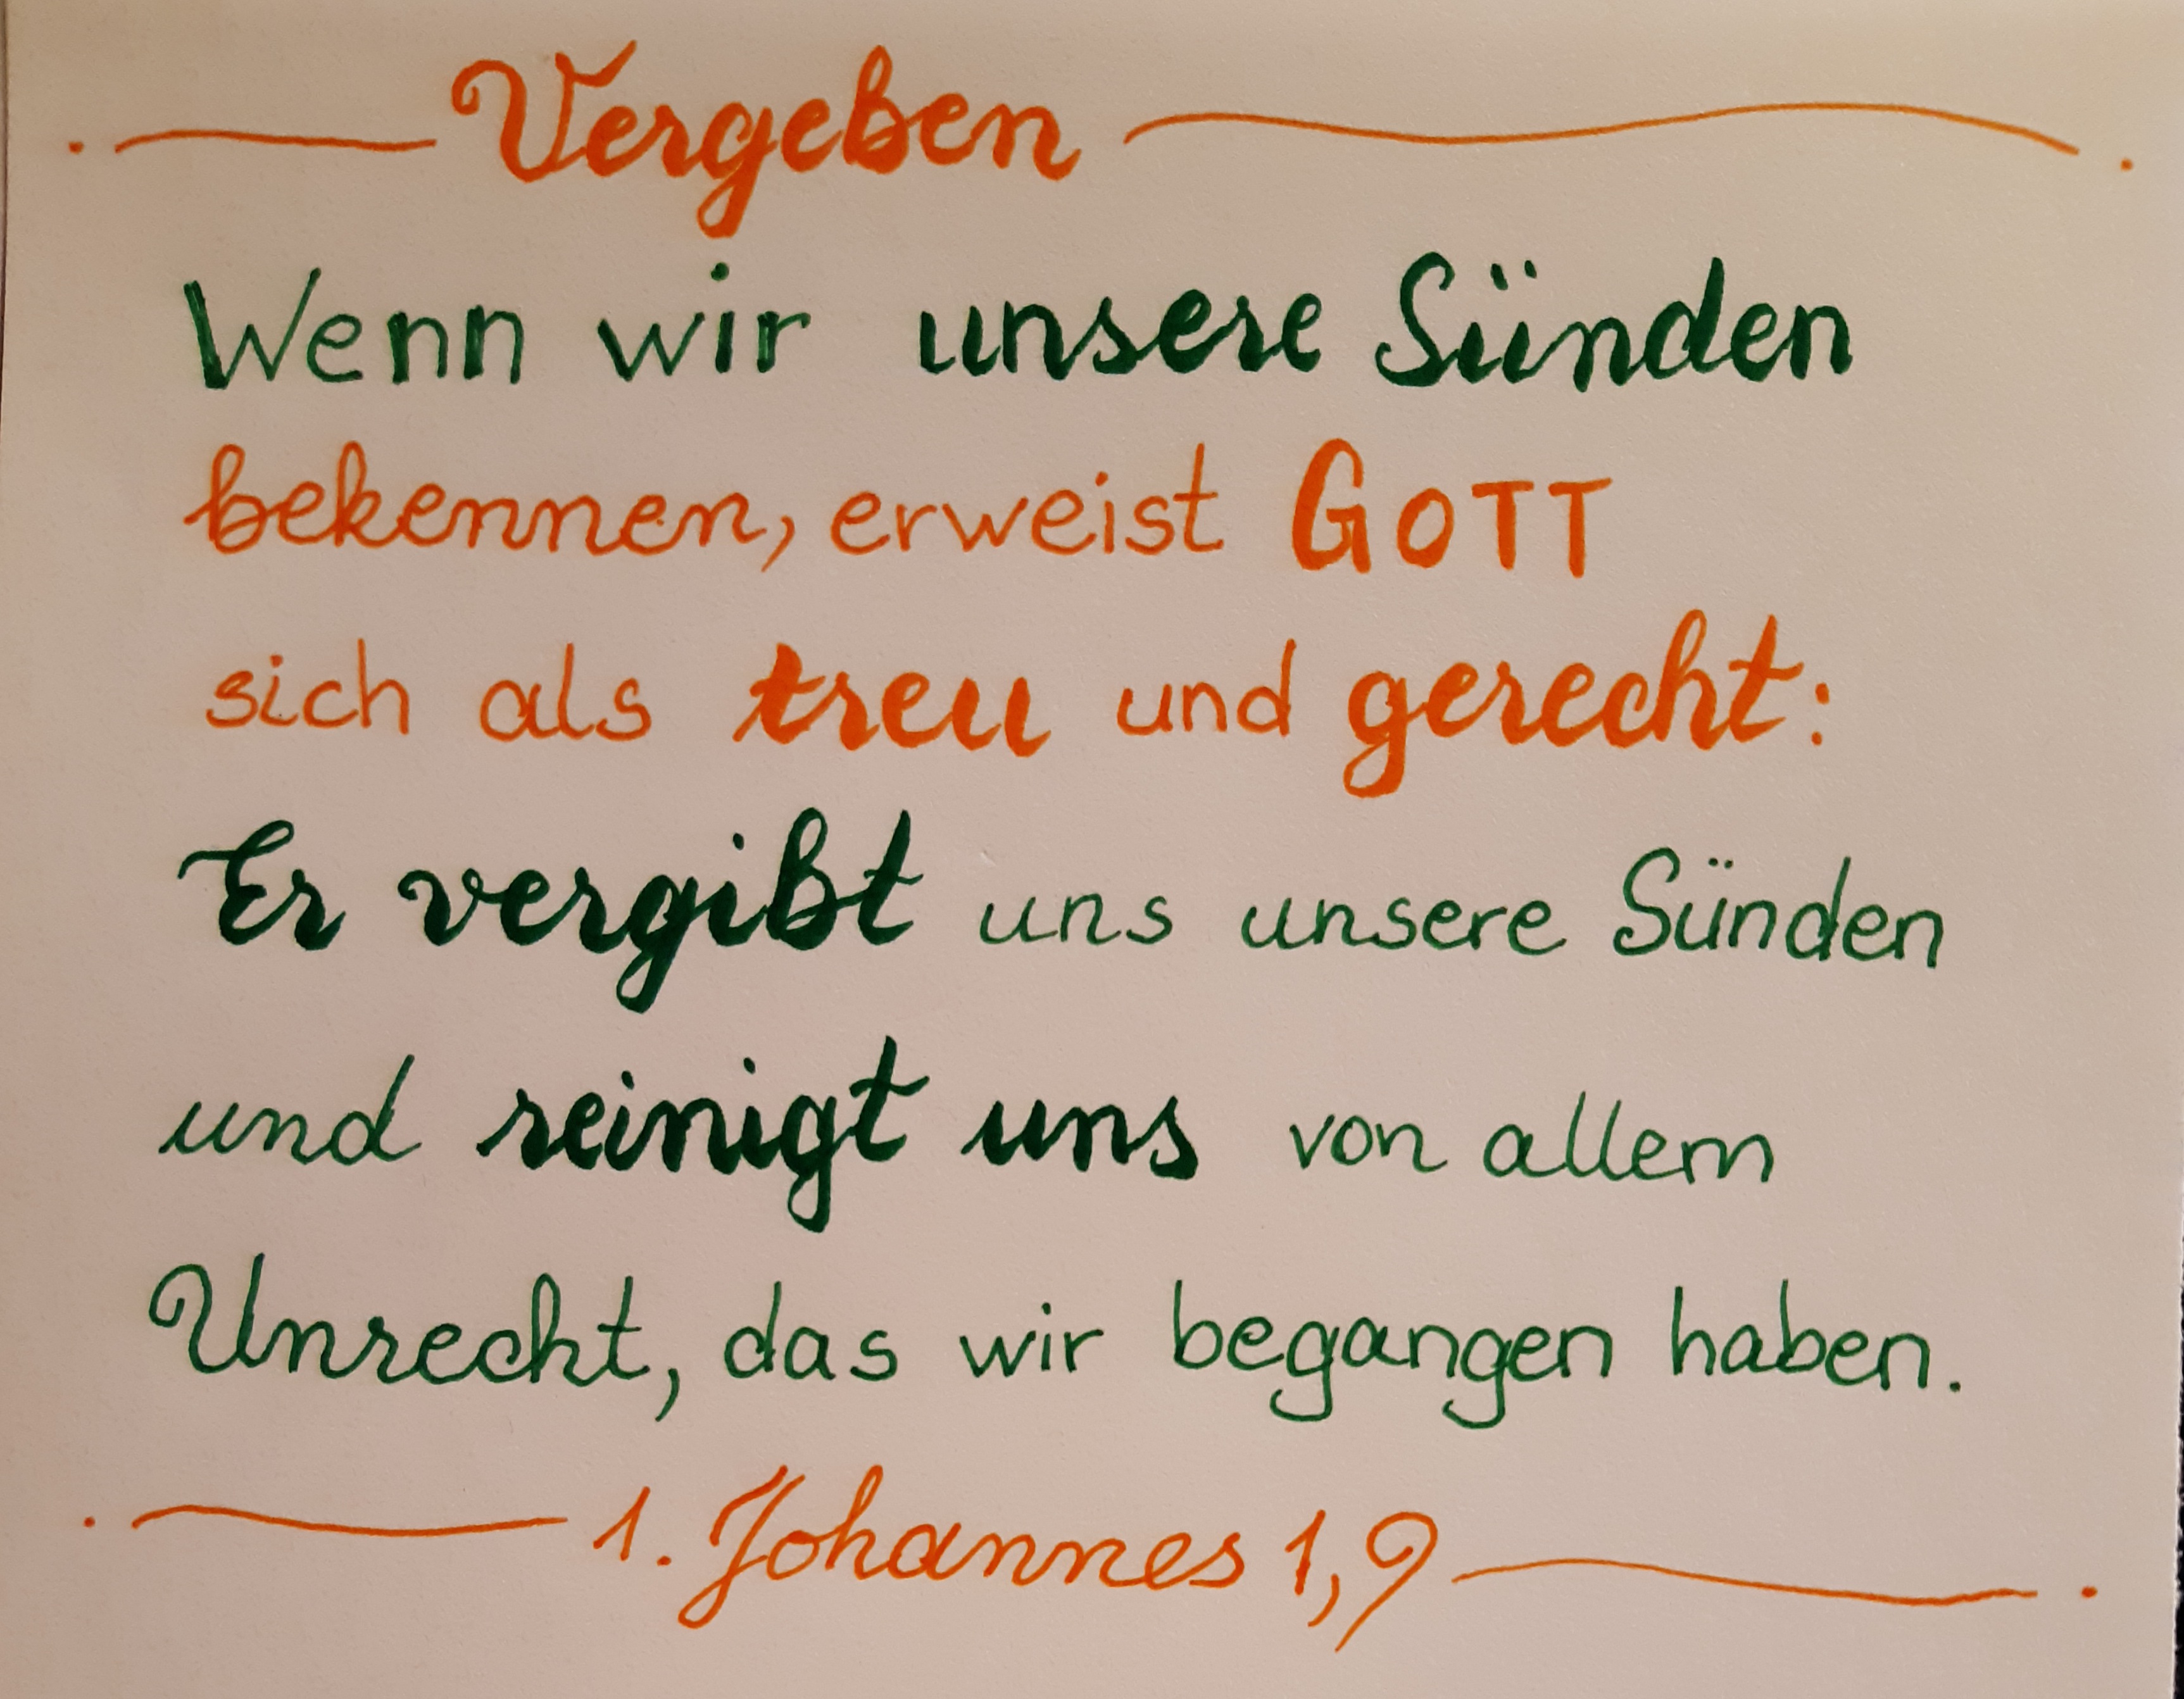 Vergeben
Wenn wir unsere Sünden
bekennen, erweist GOTT
sich als treu und gerecht:
Er vergibt uns unsere Sünden
und reinigt uns von allem
Unrecht, das wir begangen haben.
1. Johannes 1,9